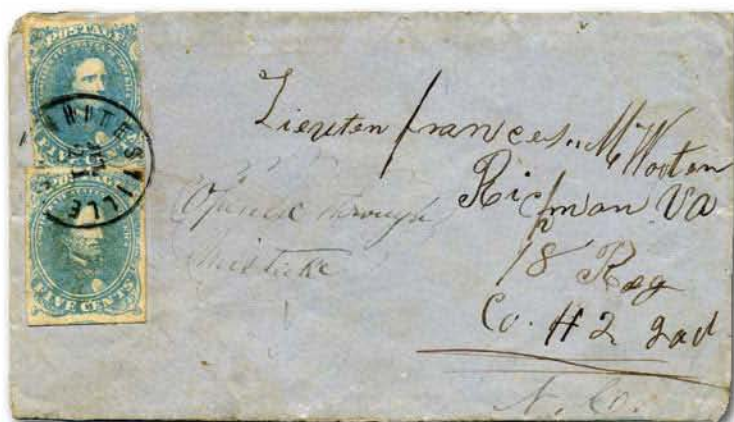 POSTAGE
FIVE CENTS
WHITESVILLE
FIVE CENTS
Lieuten frances M Wooten
Richman Va
18 Reg
Co. H 2
N. Co.
Opened through
Misticke